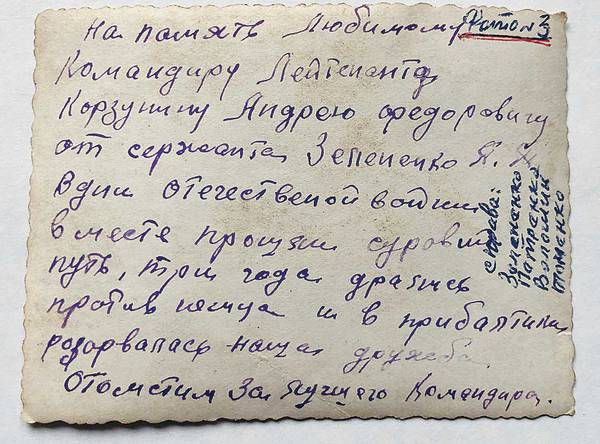 На память Любимому
Фото № 23
Командиру Лейтенанту
Корзунину Андрею Федоровичу
от сержанта Зелененко А.
В дни Отечественой войны
вместе прошли суровый
путь, три года дрались
против немца и в прибалтики
розорвалась наша дружба.
Отомстим За лучшего Командира.
справа:
Зелененко
Патренко
Волошин